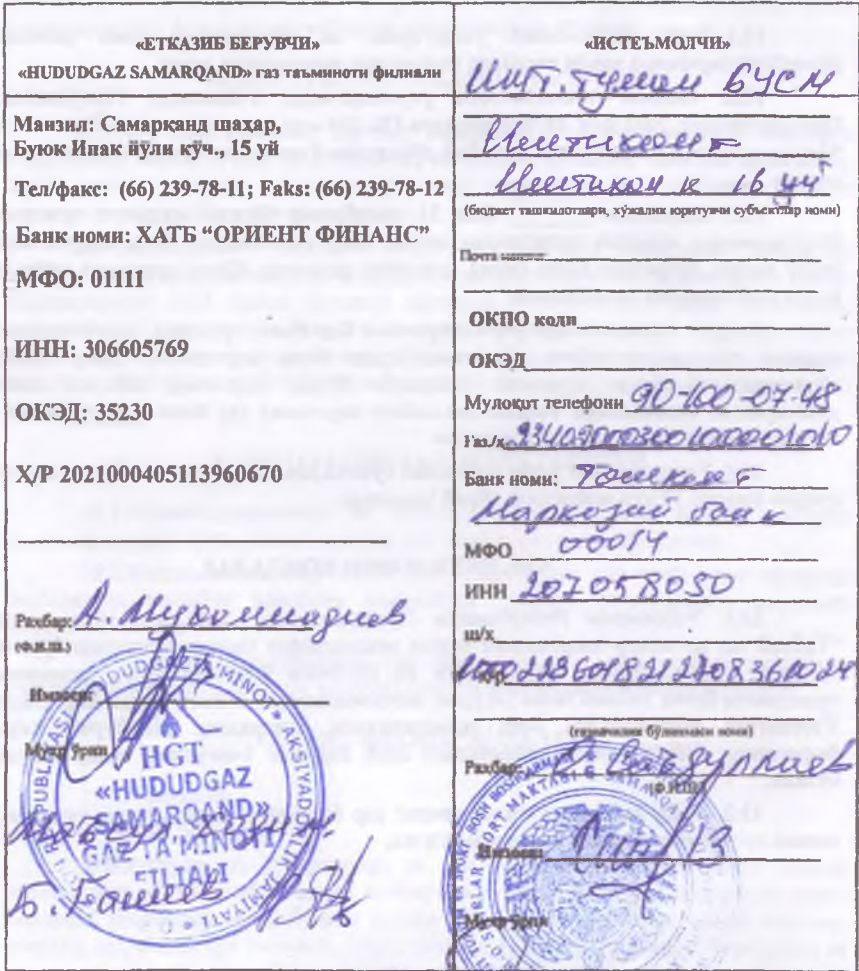 «ЕТКАЗИБ БЕРУВЧИ»
«HUDUDGAZ SAMARQAND» газ таъминоти филиали
Манзил: Самарқанд шаҳар,
Буюк Ипак йўли кўч., 15 уй
Тел/факс: (66) 239-78-11; Faks: (66) 239-78-12
Банк номи: ХАТБ “ОРИЕНТ ФИНАНС”
МФО: 01111
ИНН: 306605769
ОКЭД: 35230
Х/Р 2021000405113960670
Раҳбар: А. Мухаммадиев
(Ф.И.Ш.)
Имзоси:
Муҳр ўрни
HGT
«HUDUDGAZ
SAMARQAND»
GAZ TA'MINOTI
FILIALI
Б.
«ИСТЕЪМОЛЧИ»
Ишт. туман БУСМ
Иштихон т
Иштихон к 16 уй
(бюджет ташкилотлари, хўжалик юритувчи субъектлар номи)
Почта
ОКПО коди
ОКЭД
Мулоқот телефони 90-100-07-48
Газ/х
Банк номи: Тошкент
Марказий банк
МФО 00014
ИНН 207058050
ш/х
х/р
(ғазначилик бўлинмаси номи)
Раҳбар:
(Ф.И.Ш.)
Имзоси:
Муҳр ўрни